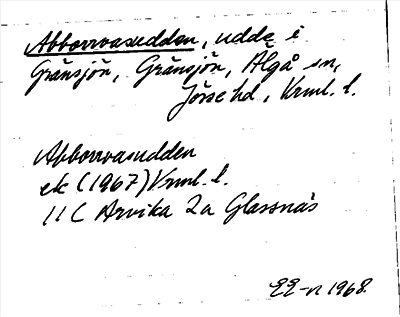 Abborrvasudden, udde i
Gränsjön, Gränsjön, Älgå sn,
Jösse hd, Vrml. l.
Abborrvasudden
ek (1967) Vrml. l.
11 C Arvika 2a Glassnäs
EE-n 1968.